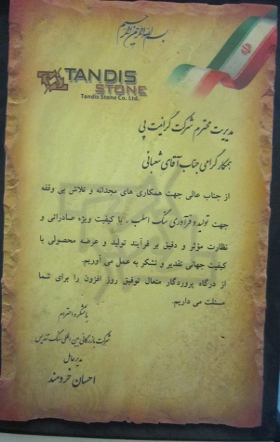 بسم الله الرحمن الرحیم
TANDIS
STONE
Tandis Stone Co. Ltd.
مدیریت محترم شرکت گرانیت پی
همکار گرامی جناب آقای شعبانی
از جناب عالی جهت همکاری های مجدانه و تلاش بی وقفه
جهت تولید و فرآوری سنگ اسلب ، با کیفیت ویژه صادراتی و
نظارت مؤثر و دقیق بر فرآیند تولید و عرضه محصولی با
کیفیت جهانی تقدیر و تشکر به عمل می آوریم.
از درگاه پروردگار متعال توفیق روز افزون را برای شما
مسئلت می داریم.
با تشکر و احترام
شرکت بازرگانی بین المللی سنگ تندیس
مدیر عامل
احسان خردمند